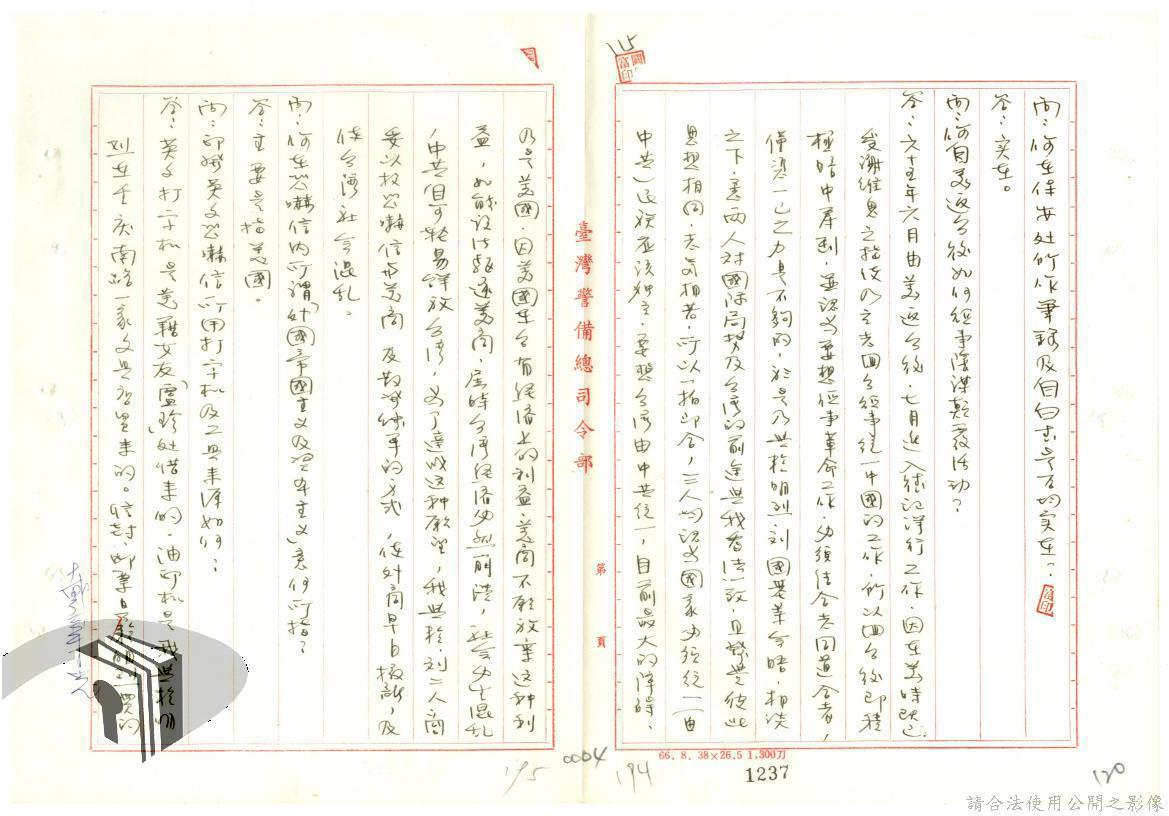 115
問：何在保安处所作筆錄及自白書是否均实在？
答：实在。
問：何自美返台後如何從事陰謀顛覆活动？
答：六十五年六月由美返台後，七月進入德記洋行工作，因在美時既已
受謝維息之指使，乃立志回台從事統一中國的工作，所以回台後即積
極暗中策劃，並認為要想從事革命工作，必須結合志同道合者，
僅憑一己之力是不夠的，於是乃與於明烈、劉國基等會晤，相談
之下，言兩人对國际局势及台湾的前途與我看法一致，且彼此
思想相同，志氣相若，所以一拍即合，三人均認為國家必須統一（由
中共），民族应該独立，要想台湾由中共統一，目前最大的障碍，
臺灣警備總司令部
第　頁
乃是美國，因美國在台有經濟上的利益，美商不願放棄这种利
益，如能設法驅逐美商，屆時台湾經濟必然崩潰，社会必生混乱
，中共自可輕易解放台湾，为了達成这种願望，我與於、刘二人商
妥以投恐嚇信与美商及
的方式，使外商早日撤离，及
使台湾社会混乱。
問：何在恐嚇信内所謂「外國帝國主义及資本主义」意何所指？
答：主要是指美國。
問：印製英文恐嚇信所用打字机及工具来源如何？
答：英文打字机是美籍女友「盧珍」处借来的，油印机是我與於明
烈在重庆南路一家文具店買来的。信封、邮票由於明烈買的
66. 8. 38×26.5 1.300刀
1237
0004
194
195
120
請合法使用公開之影像